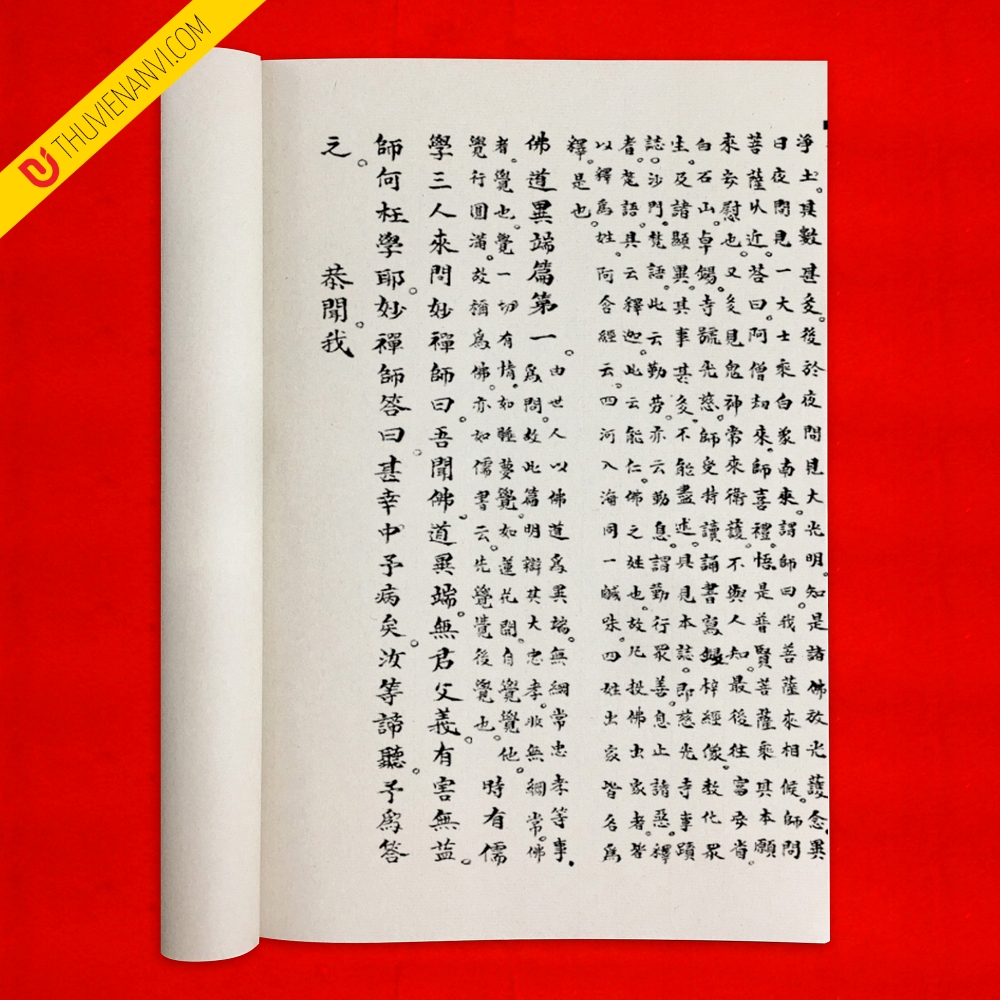 THUVIENANVI.COM
淨土。其數甚多。後於夜間見大光明。知是諸佛放光護念。異
日夜間見一大士乘白象南來。謂師曰。我菩薩來相候。師問
菩薩从近。答曰。阿僧劫來。師喜禮。悟是普賢菩薩乘其本願
來安慰也。又多見鬼神常來衛護。不與人知。最後往富安省。
白石山。卓錫。寺號光慈。師受持讀誦書寫鋟梓經像。教化眾
生。及諸顯異。其事甚多。不能盡述。具見本誌。即慈光寺事蹟
誌。沙門。梵語。此云勤勞。亦云勤息。謂勤行眾善。息止諸惡。釋
者。梵語。具云釋迦。此云能仁。佛之姓也。故凡投佛出家者。皆
以釋爲姓。阿含經云。四河入海同一鹹味。四姓出家皆名爲
釋。是也。
佛道異端篇第一。
由世人以佛道爲異端。無綱常忠孝等事。
爲問。故此篇明辯其大忠孝。非無綱常。佛
者。覺也。覺一切有情。如睡夢覺。如蓮花開。自覺覺他。
覺行圓滿。故稱爲佛。亦如儒書云。先覺覺後覺也。
時有儒
學三人來問妙禪師曰。吾聞佛道異端。無君父義。有害無益。
師何枉學耶。妙禪師答曰。甚幸中予病矣。汝等諦聽。予爲答
之。恭聞。我